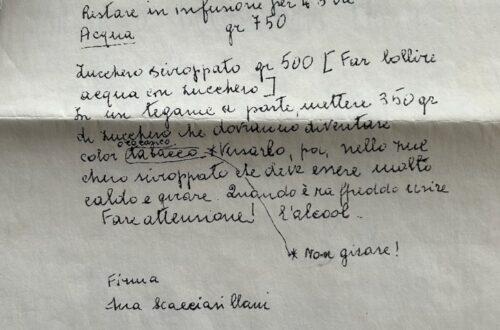 Restare in infusione per 45
Acqua gr 750
Zucchero sciroppato gr 500 [Far bollire
acqua con zucchero]
In un tegame a parte, mettere 350 gr
di zucchero che dovranno diventare
color tabacco *Versarlo, poi, nello zuc
chero sciroppato che deve essere molto
caldo e girare. Quando è raffreddo unire
Fare attenzione! l'alcool.
* Non girare!
Firma